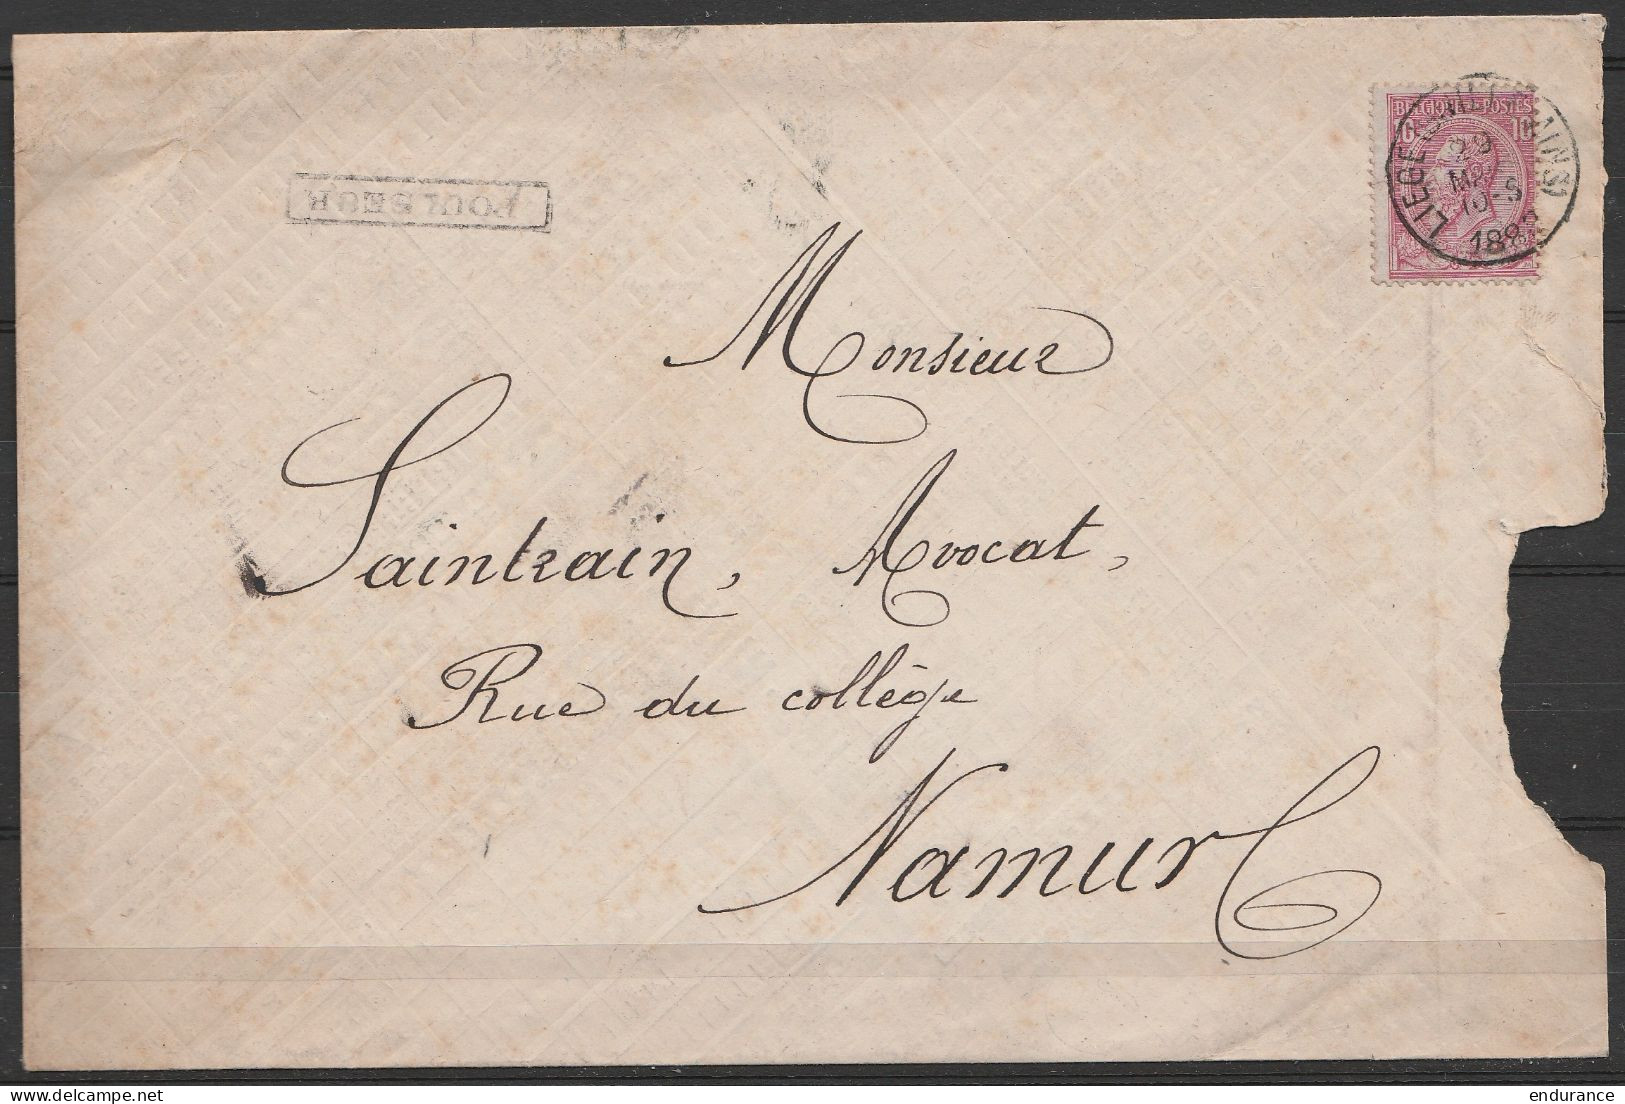 BELGIQUE POSTES
10
LIEGE
29
10-S
188
POULSEUR
Monsieur
Saintrain, Avocat,
Rue du collège
Namur
delcampe.net
endurance